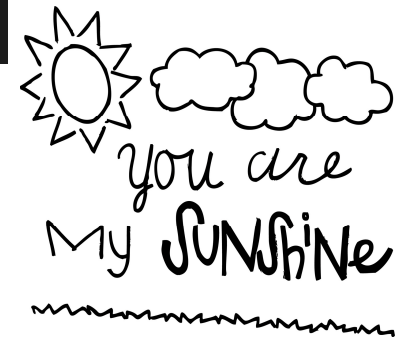 you are
My SUNShiNe